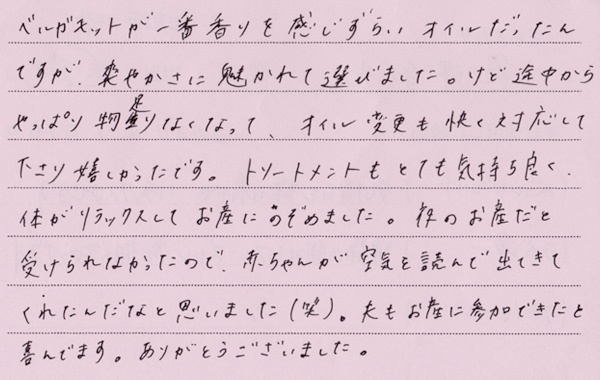 ベルガモットが一番香りを感じずらい オイルだったん
ですが、爽やかさに魅かれて選びました。けど途中から
やっぱり物足りなくなって、オイル変更も快く対応して
下さり嬉しかったです。トリートメントもとても気持ち良く、
体がリラックスしてお産にのぞめました。夜のお産だと
受けられなかったので、赤ちゃんが空気を読んで出てきて
くれたんだなと思いました(笑)。夫もお産に参加できたと
喜んでます。ありがとうございました。